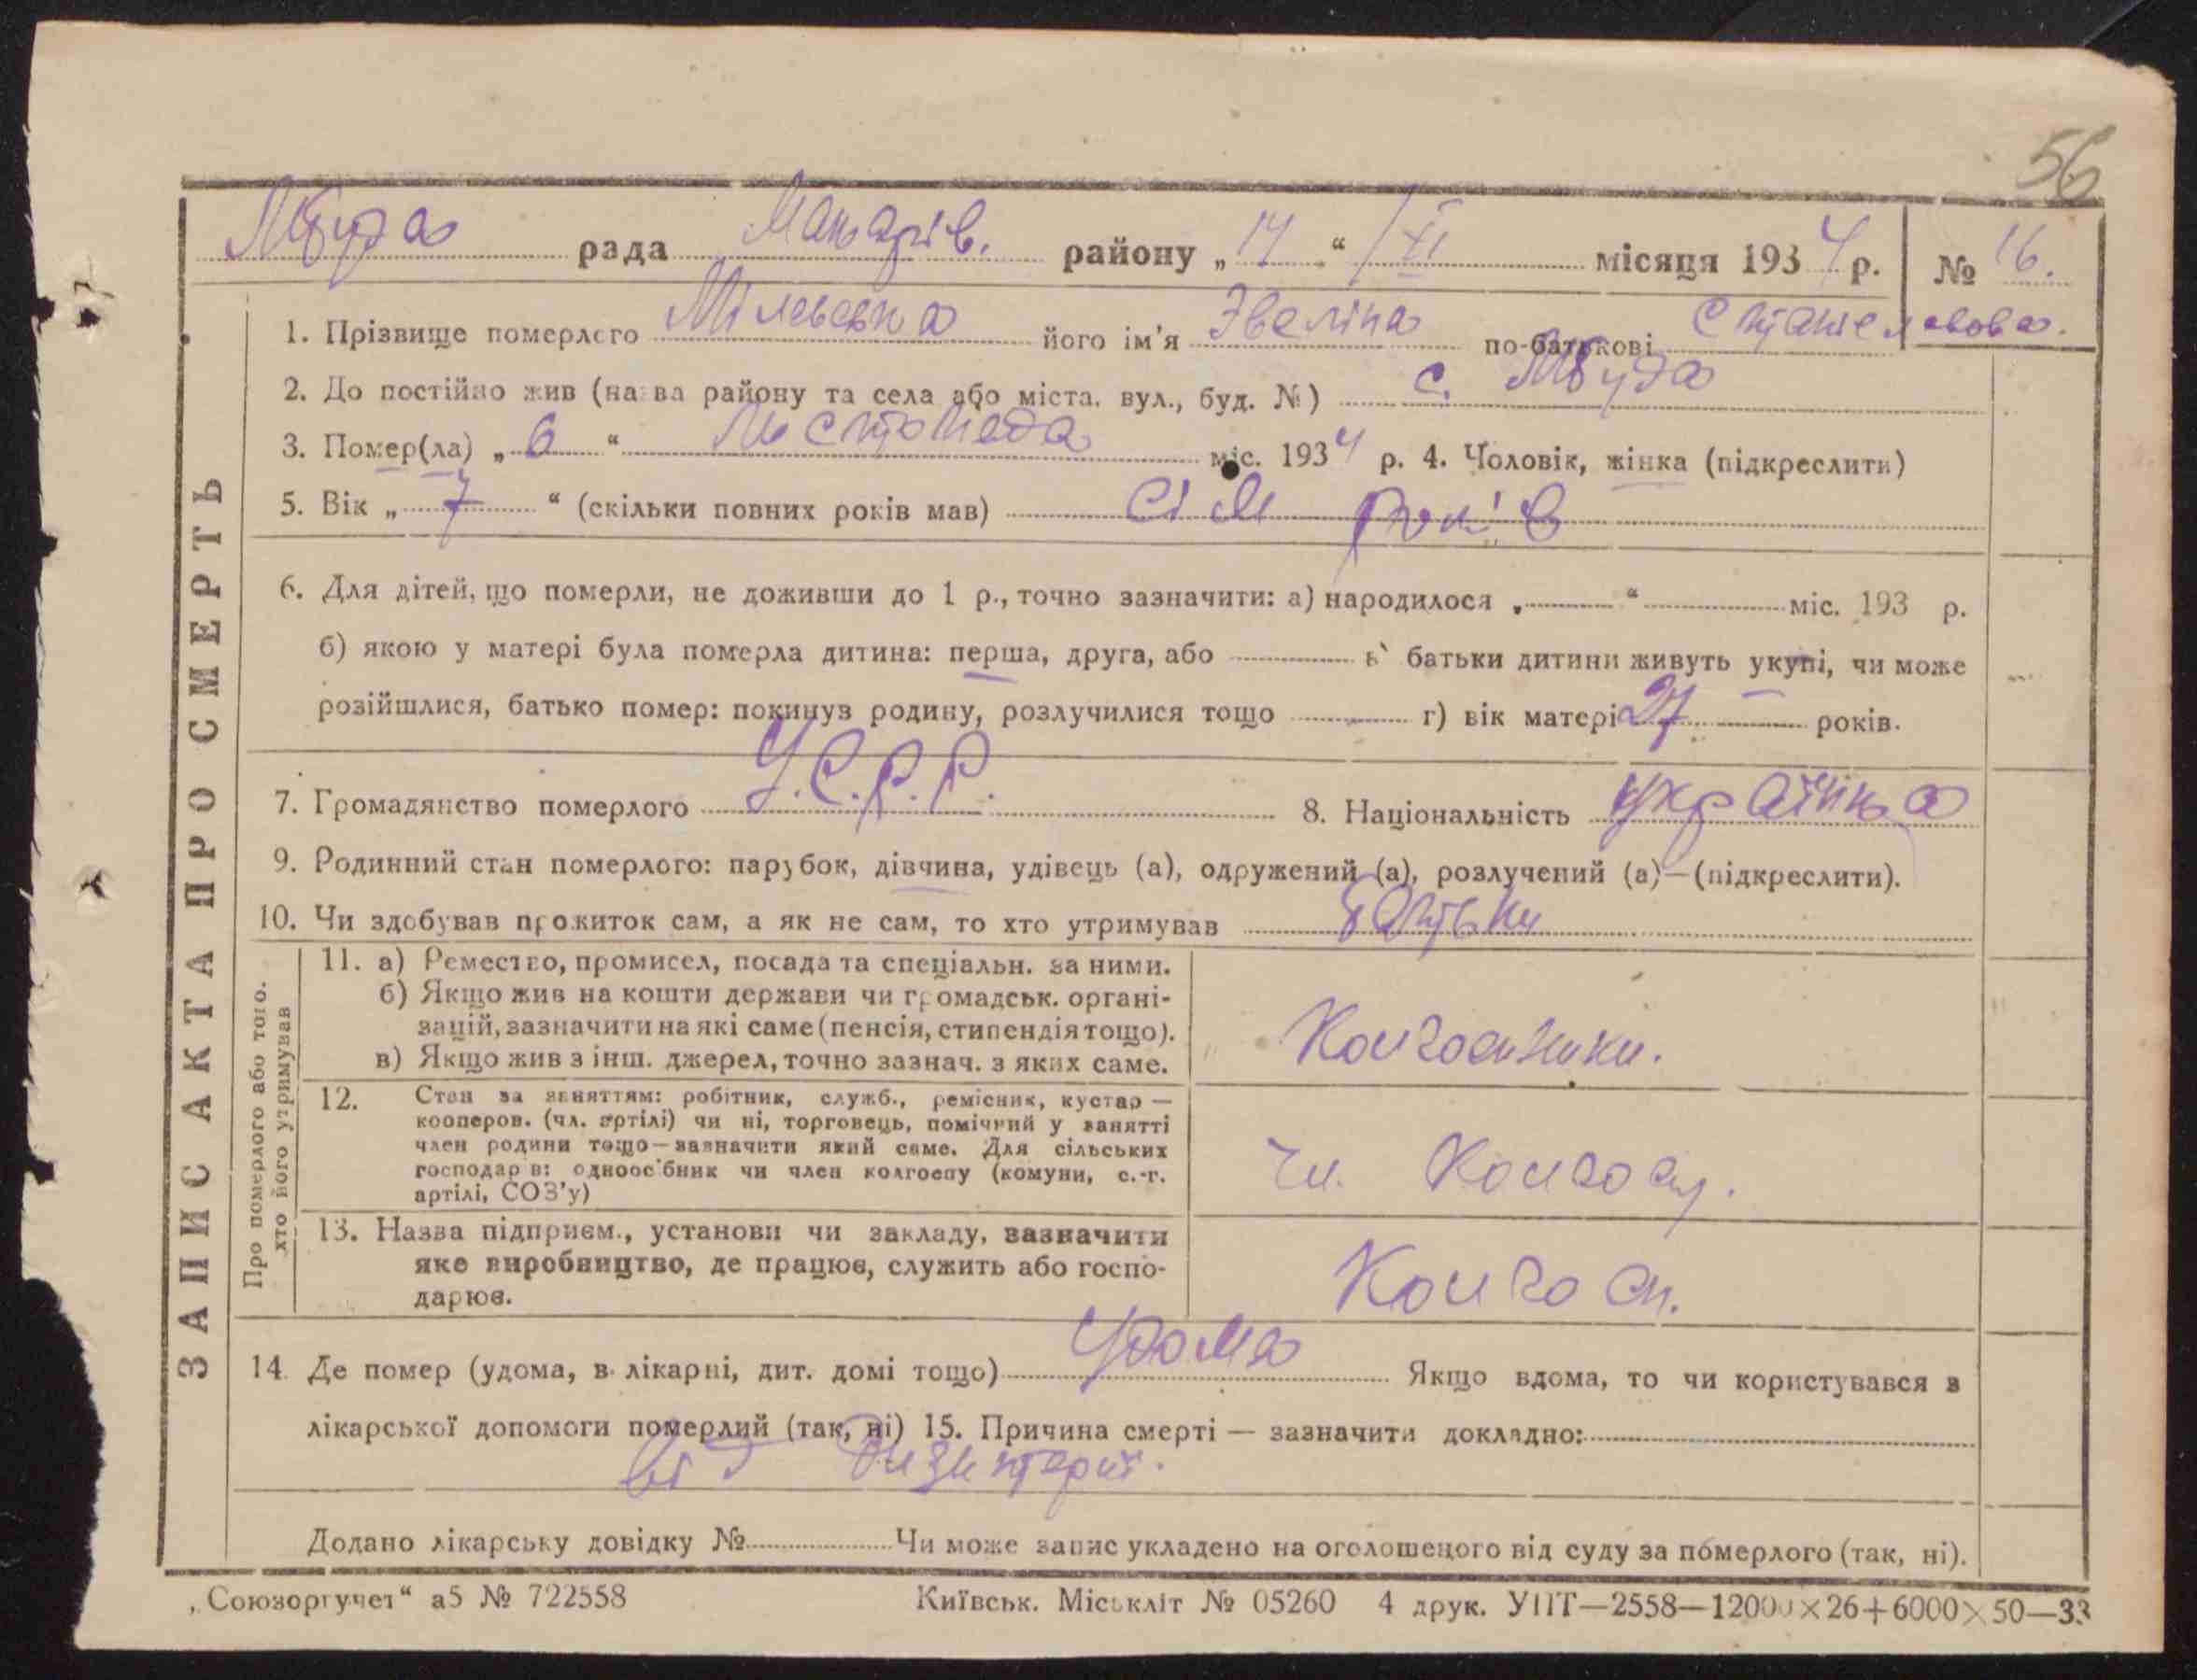 56
Мвуда рада Макарів. району „14“ /XI місяця 1934 р. № 16.
ЗАПИС АКТА ПРО СМЕРТЬ
1. Прізвище померлого Мілевська його ім'я Эвеліна по-батькові Станиславова.
2. До постійно жив (назва району та села або міста, вул., буд. №) с. Мвуда
3. Помер(ла) „6“ Листопада міс. 1934 р. 4. Чоловік, жінка (підкреслити)
5. Вік „7“ (скільки повних років мав) сім років
6. Для дітей, що померли, не доживши до 1 р., точно зазначити: а) народилося „ “ міс. 193 р.
б) якою у матері була померла дитина: перша, друга, або в) батьки дитини живуть укупі, чи може
розійшлися, батько помер: покинув родину, розлучилися тощо г) вік матері 27 років.
7. Громадянство померлого У.С.Р.Р. 8. Національність українка
9. Родинний стан померлого: парубок, дівчина, удівець (а), одружений (а), розлучений (а)—(підкреслити).
10. Чи здобував прожиток сам, а як не сам, то хто утримував батьки
Про померлого або того.
хто його утримував
11. а) Ремество, промисел, посада та спеціальн. за ними.
б) Якщо жив на кошти держави чи громадськ. органі-
зацій, зазначити на які саме (пенсія, стипендія тощо).
в) Якщо жив з інш. джерел, точно зазнач. з яких саме.
Колгоспники.
12. Стан за заняттям: робітник, служб., ремісник, кустар —
кооперов. (чл. артілі) чи ні, торговець, помічний у занятті
член родини тощо — зазначити який саме. Для сільських
господарів: одноосібник чи член колгоспу (комуни, с.-г.
артілі, СОЗ'у)
Чл. Колгосп.
13. Назва підприєм., установи чи закладу, зазначити
яке виробництво, де працює, служить або госпо-
дарює.
Колгосп.
14. Де помер (удома, в лікарні, дит. домі тощо) Удома Якщо вдома, то чи користувався з
лікарської допомоги померлий (так, ні) 15. Причина смерті — зазначити докладно:
від Дизинтерії.
Додано лікарську довідку № Чи може запис укладено на оголошеного від суду за померлого (так, ні).
„Союзоргучет“ а5 № 722558 Київськ. Міськліт № 05260 4 друк. УПТ—2558—12000×26+6000×50—33